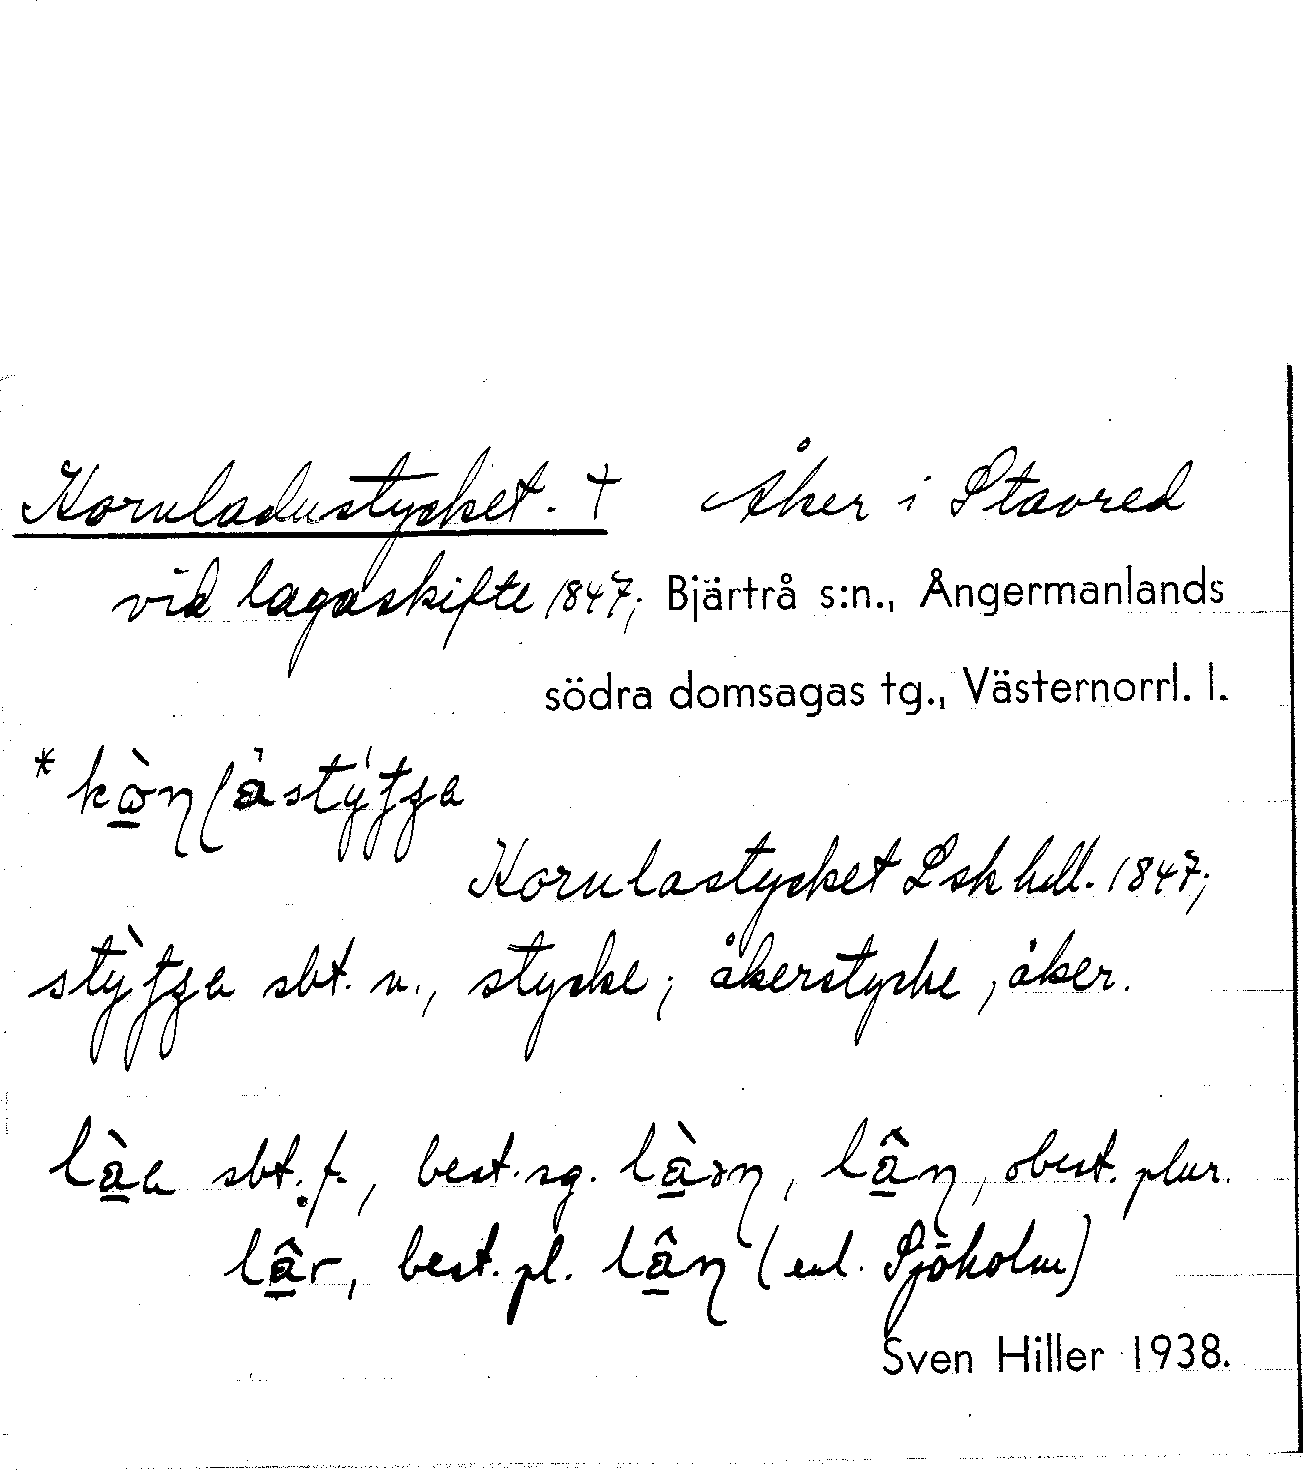 Kornladustycket. † Åker i Stavred
vid lagaskifte 1847; Bjärtrå s:n., Ångermanlands
södra domsagas tg., Västernorrl. l.
Kornlastycket Lsk hdl. 1847;
sbt. n., stycke; åkerstycke, åker.
làa sbt. f., best. sg. obest. plur.
lâr, best. pl. (enl. Sjöholm)
Sven Hiller 1938.